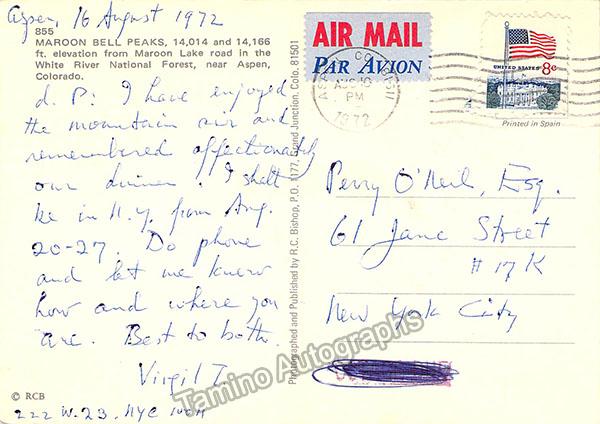 Aspen, 16 August 1972
855
MAROON BELL PEAKS, 14,014 and 14,166
ft. elevation from Maroon Lake road in the
White River National Forest, near Aspen,
Colorado.
d. P: I have enjoyed
the mountain air and
remembered affectionately
our dinner. I shall
be in N.Y. from Aug.
20-27. Do phone
and let me know
how and where you
are. Best to both.
Virgil T.
© RCB
222 W. 23. NYC 10011
Photographed and Published by R.C. Bishop, P.O. 1177, Grand Junction, Colo. 81501
AIR MAIL
PAR AVION
CO
PM
1972
UNITED STATES 8c
Printed in Spain
Perry O'Neil, Esq.
61 Jane Street
# 17 K
New York City
Tamino Autographs